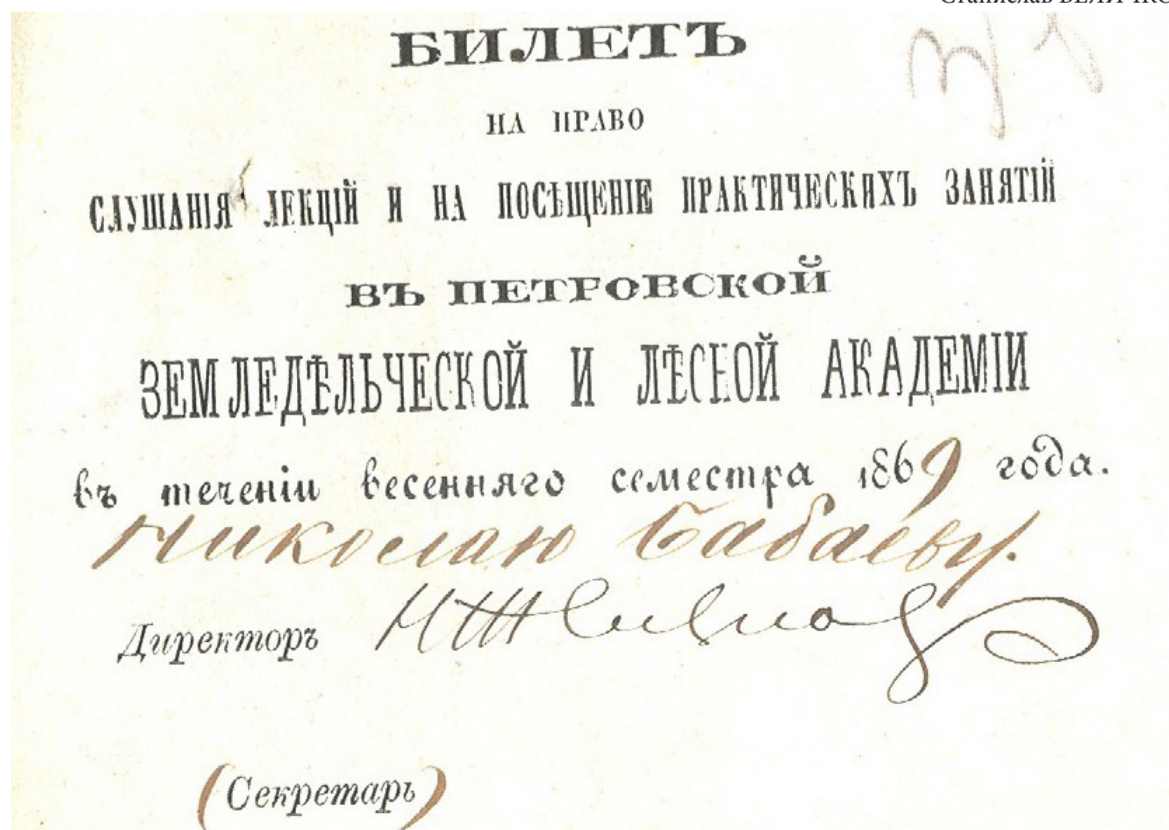 БИЛЕТЪ
НА ПРАВО
СЛУШАНІЯ ЛЕКЦІЙ И НА ПОСѢЩЕНІЕ ПРАКТИЧЕСКИХЪ ЗАНЯТІЙ
ВЪ ПЕТРОВСКОЙ
ЗЕМЛЕДѢЛЬЧЕСКОЙ И ЛѢСНОЙ АКАДЕМІИ
въ теченіи весенняго семестра 1869 года.
Николаю Бабаеву.
Директоръ
(Секретарь)